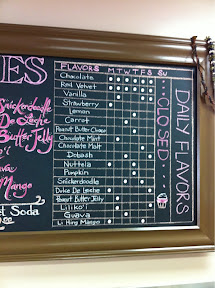 ES
Snickerdoodle
De Leche
Butter Jelly
Mango
Soda
FLAVORS M T W T F S Su
Chocolate
Red Velvet
Vanilla
Strawberry
Lemon
Carrot
Peanut Butter Choco
Chocolate Mint
Chocolate Malt
Dobash
Nuttela
Pumpkin
Snickerdoodle
Dulce De Leche
Peanut Butter Jelly
Liliko'i
Guava
Li Hing Mango
CLOSED
DAILY FLAVORS